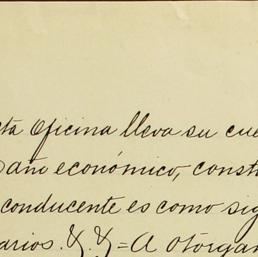 cta Oficina lleva su cue
año económico, consti
conducente es como sig
arios. &. &=A otorgan